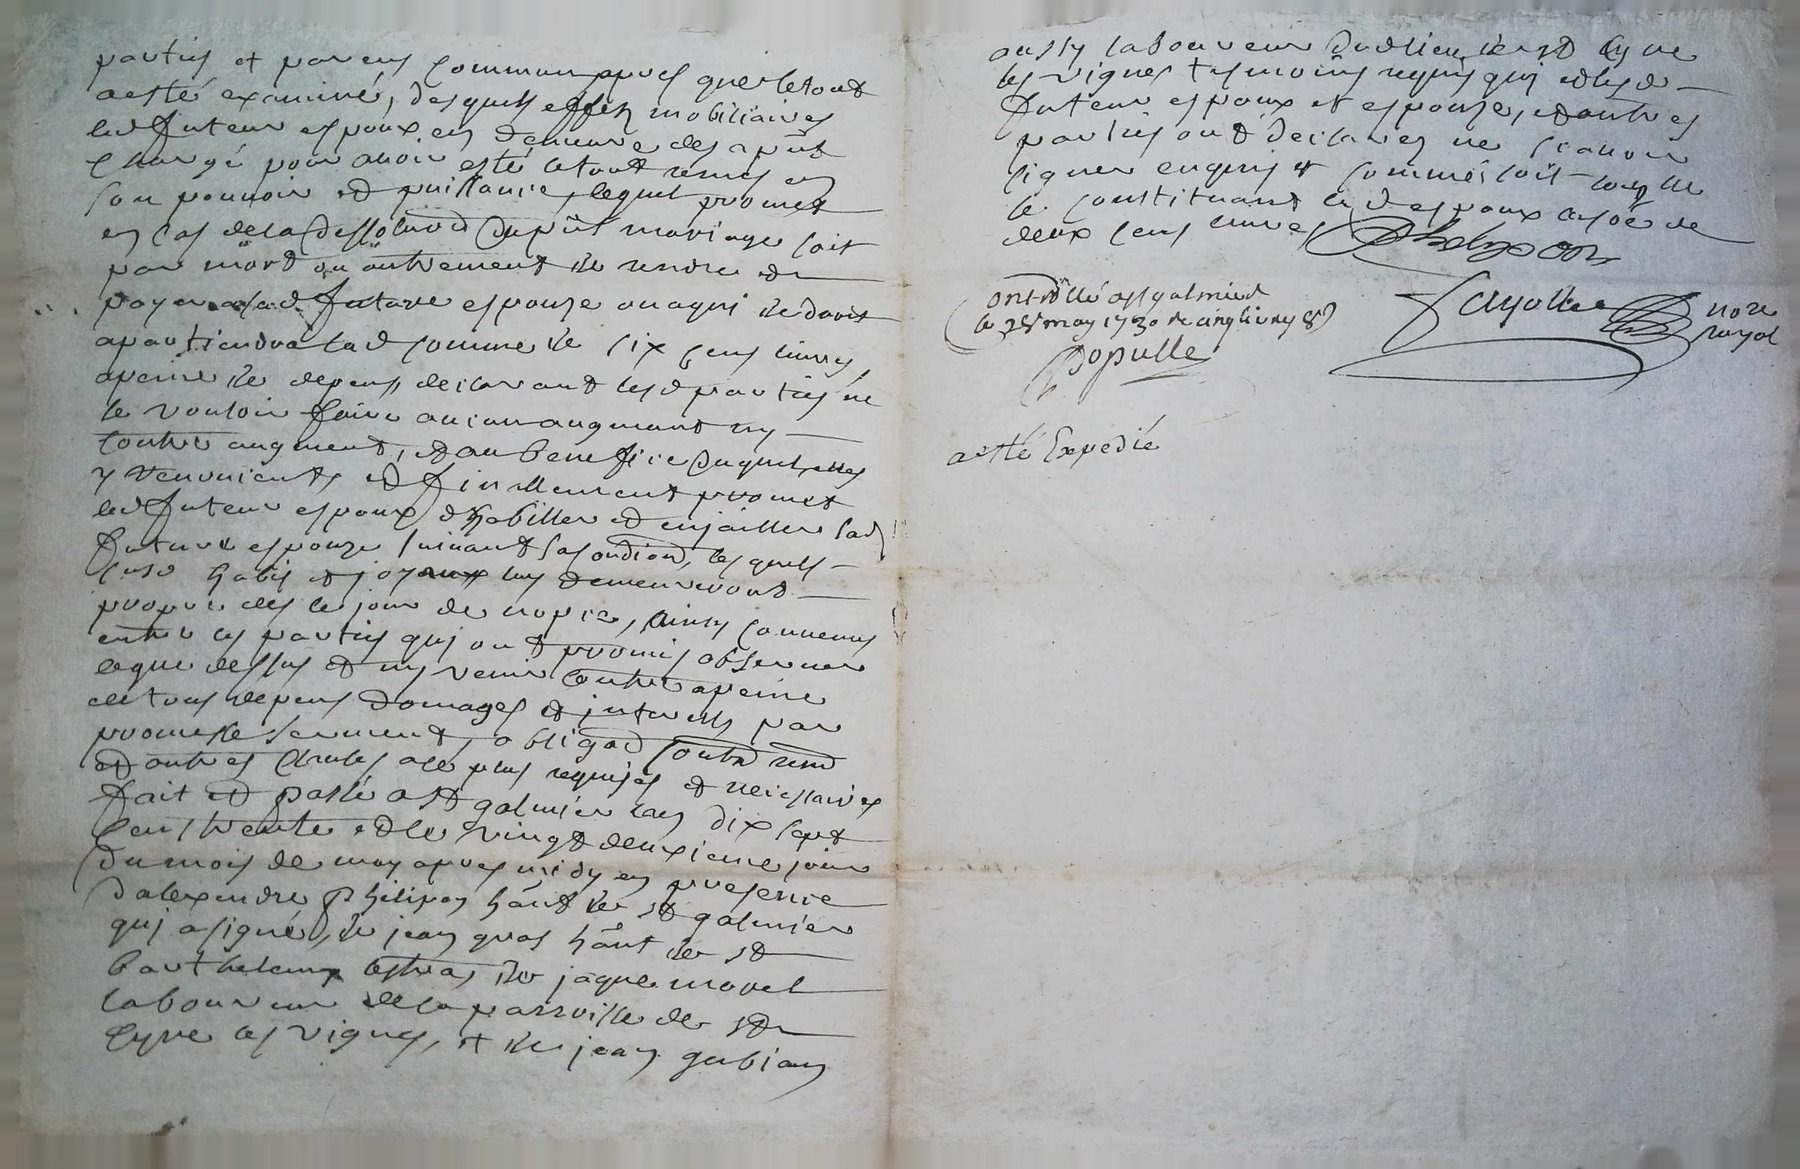 parties et parens communs apres que letout
aesté examiné, desquels effets mobiliaires
led futeur espoux en demeure des apñt
chargé pour auoir esté letout remis en
son pouuoir et puissance, lequel promet
en cas de la dissolu͠on du pñt mariage soit
par mort ou autrement de rendre et
payer alad future espouze ou aqui de droit
apartiendra lad somme de six cens liures
apeine de depens, declarant lesd parties ne
se vouloir faire aucun augment ny
contre augment, et au benefice duquel elles
y renoncent, et finallement promet
led futeur espoux d'habiller et enjoailler sad
future espouze suiuant sa condi͠on, lesquels
susd habis et joyaux luy demeureront
propre des le jour de nopce, ainsy conuenus
entre les parties qui ont promis obseruer
ceque dessus et ny venir contre apeine
de tous depens domages et interests par
promesse serment, obliga͠on
et autres clauses ace plus requises et necessaires
fait et passé a St galmier lan dix sept
cens trente et le vingt deuxieme jour
du mois de may apres midy en presence
dalexendre philipon hânt de St galmier
qui a signé, de jean gras hânt de St
barthelemy lestra, de jaque morel
laboureur de la parroisse de St
Cyre les vignes, et de jean gubian
aussy laboureur dudlieu de St Cyre
les vignes tesmoins requis qui et lesd
futeur espoux et espouze, et autres
parties ont declarés ne scauoir
signer enquis et sommés soit
le constituant led espoux de
deux cens liures Phelypon
Controllé a St galmier
le 28 may 1730 Re cinq liures 8s
Populle
Fayolle no͠re
royal
a esté Expedié